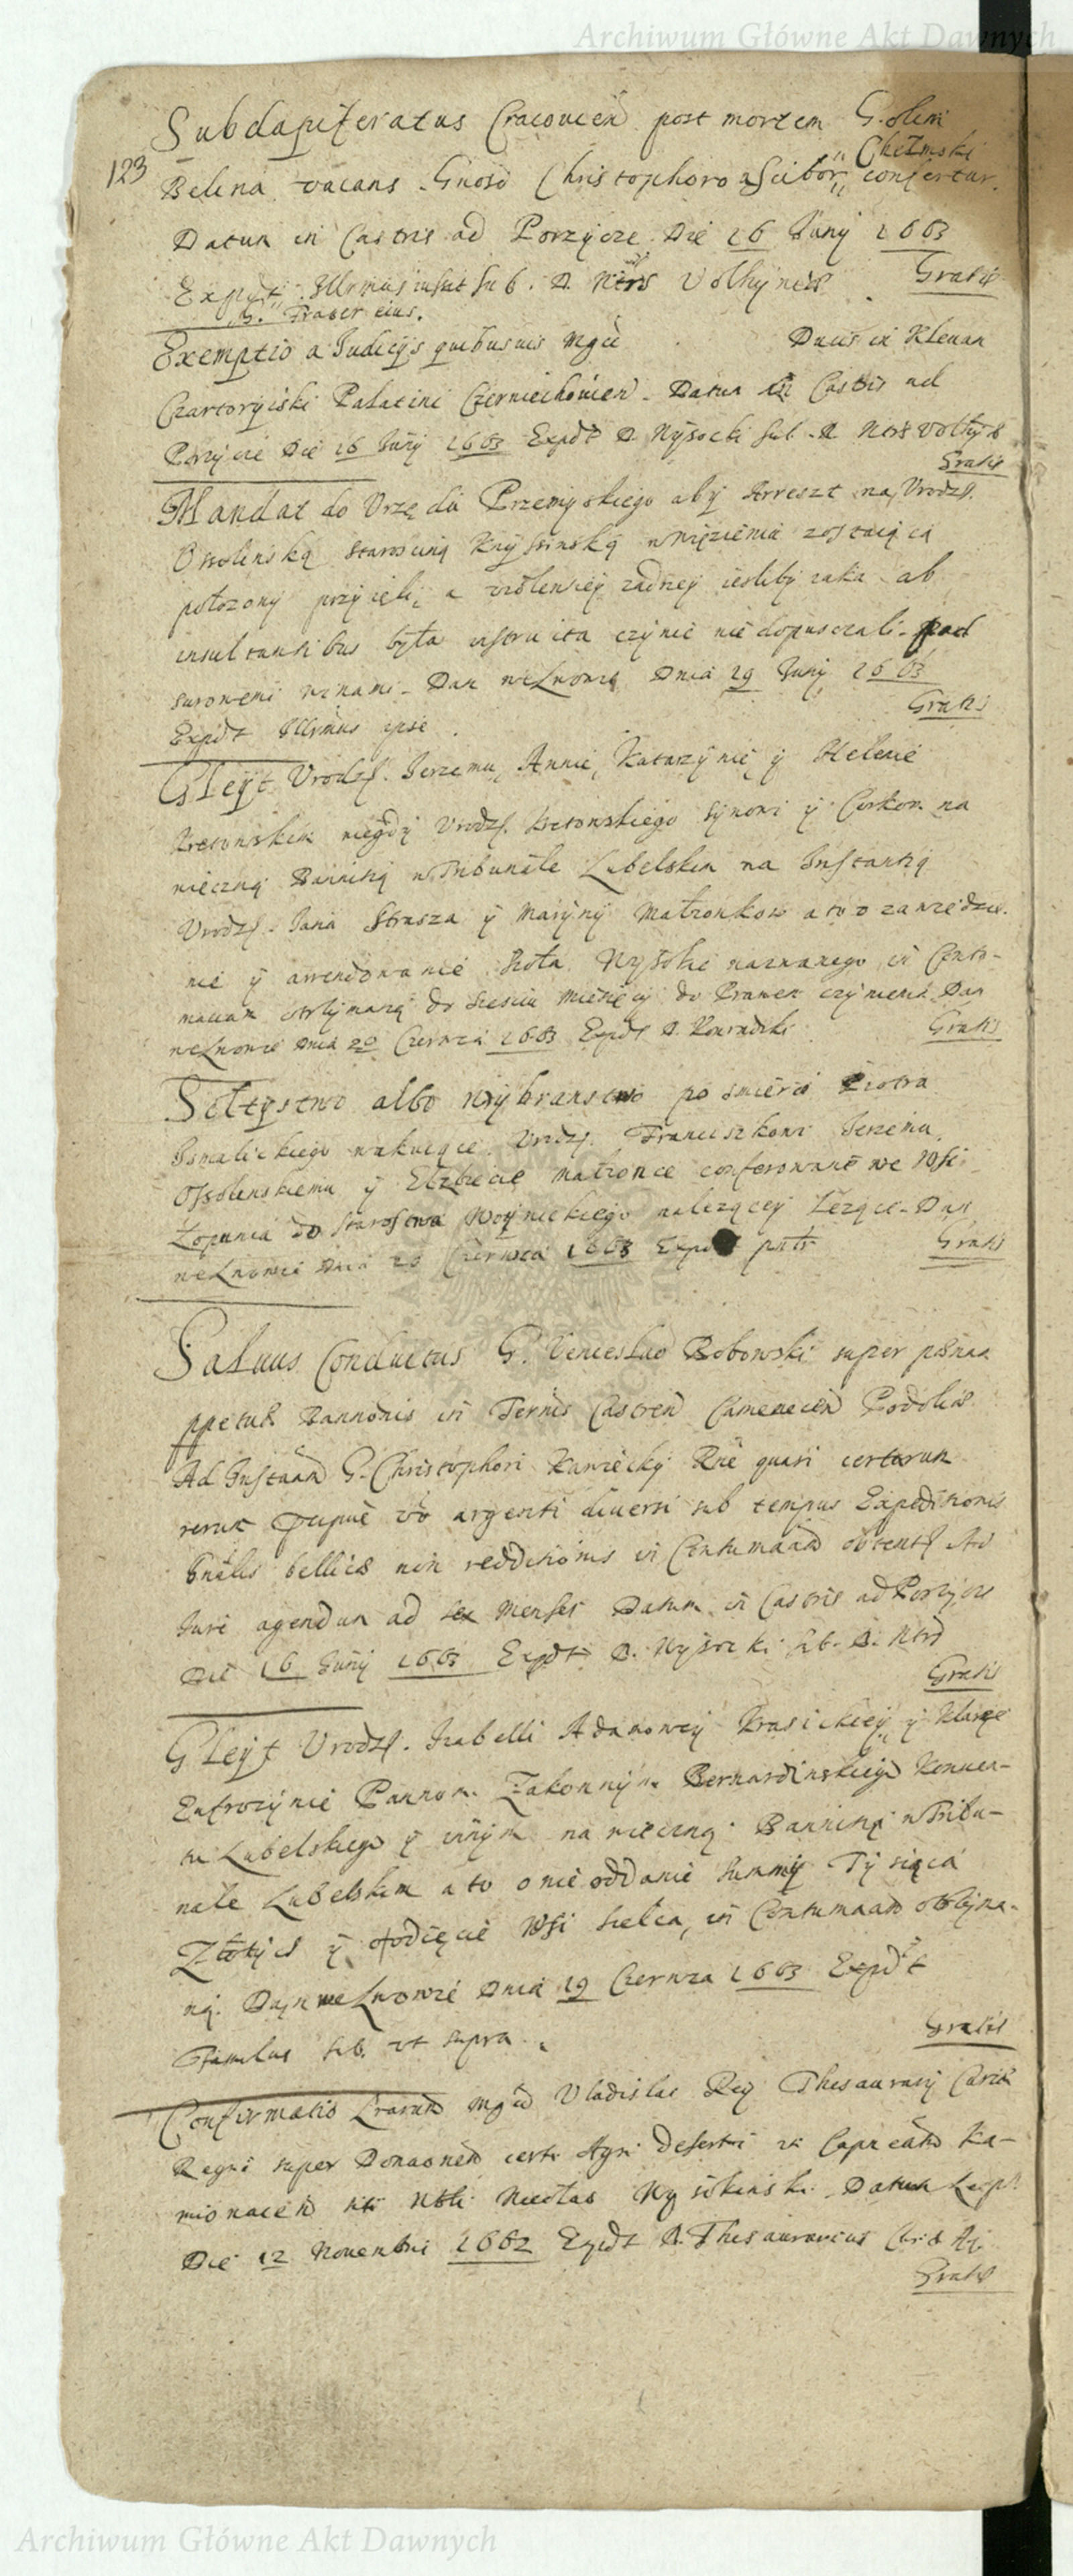 Archiwum Główne Akt Dawnych
Subdapiferatus Cracovień post mortem G. olim
123
Chełmski
Belina vacans Gnoso Christophoro Scibor confertur.
Datum in Castris ad Porzycze Die 16 Juny 1663
Expdt Illrmus Sub. D. Ntrs Volhynien
Gratis
G. Frater eius.
Exemptio a Judicys quibusvis Mgci Ducis in Klevan
Czartoryiski Palatini Czerniechovien. Datum in Castris ad
Porzycze Die 16 Juny 1663 Expdt D. Wysocki Sub. D. Ntrs Volhyń
Gratis
Mandat do Vrzędu Przemyskiego aby Arreszt na Vrodz.
Ossolinską Starościną Knyszinską w więzieniu zostaiącą
położony przyieli, a violenciey żadney iesliby iaka ab
insultantibus była czynic nie dopusczali. pod
surowemi winami. Dan we Lwowie Dnia 19 Juny 1663
Gratis
Expdt Illrmus ipse.
Gleyt Vrodz. Jerzemu, Annie, Katarzynie y Helenie
niegdy Vrodz. synowi y Corkom na
wieczną Bannitią w Tribunale Lubelskim na Instantią
Vrodz. Jana Strusza y Maryny Małzonkow a to o zawiedze-
nie y arrendowanie Wysokie nazwanego in Contu-
maciam otrzymaną do szesciu Miesięcy do Prawem czynienia Dan
we Lwowie Dnia 20 Czerwca 1663 Expdt D.
Gratis
Sołtystwo albo wybranstwo po smierci Piotra
wakuiące Vrodz. Franciszkowi Jerzemu
Ossolinskiemu y Elzbiecie Małzonce conferowane we Wsi
Łopunia do Starostwa Woynickiego należącey leżące. Dan
we Lwowie Dnia 20 Czerwca 1663 Expdt
Gratis
Salvus Conductus G. Venceslao Bobowski super poenam
ppetuae Bannonis in Terris Castreń Camenecen Podoliae
Ad Instaam G. Christophori Kawiecky Rne quasi certarum
rerum vo argenti diversi sub tempus Expeditionis
Gnalis bellicae non redditionis in Contumaam obtent Ad
Jure agendum ad sex Menses Datum in Castris ad Porzycze
Die 16 Juny 1663 Expdt D. Wysocki Sub. D. Ntrs
Gratis
Gleyt Vrodz. Izabelli Adamowey Krasickiey y Klarze
Eufrozynie Pannom Zakonnym Bernardinskiego Konwen-
tu Lubelskiego y innym na wieczną Bannitią w Tribu-
nale Lubelskim a to o nie oddanie Summy Tysiąca
Złotych y odięcie Wsi Sielca, in Contumaam otrzyma-
ną. Dan we Lwowie Dnia 19 Czerwca 1663 Expdt
Gratis
Famulus Sub. ut supra.
Confirmatio Lrarum Mgci Vladislai Rey Thesaurary Curiae
Regni super Donaonem certi Agri deserti in Capneatu Ka-
mionaceń Nbli Nicolao Wysokinski. Datum Leop.
Die 12 Novembri 1662 Expdt D. Thesaurarius Curiae
Gratis
Archiwum Główne Akt Dawnych